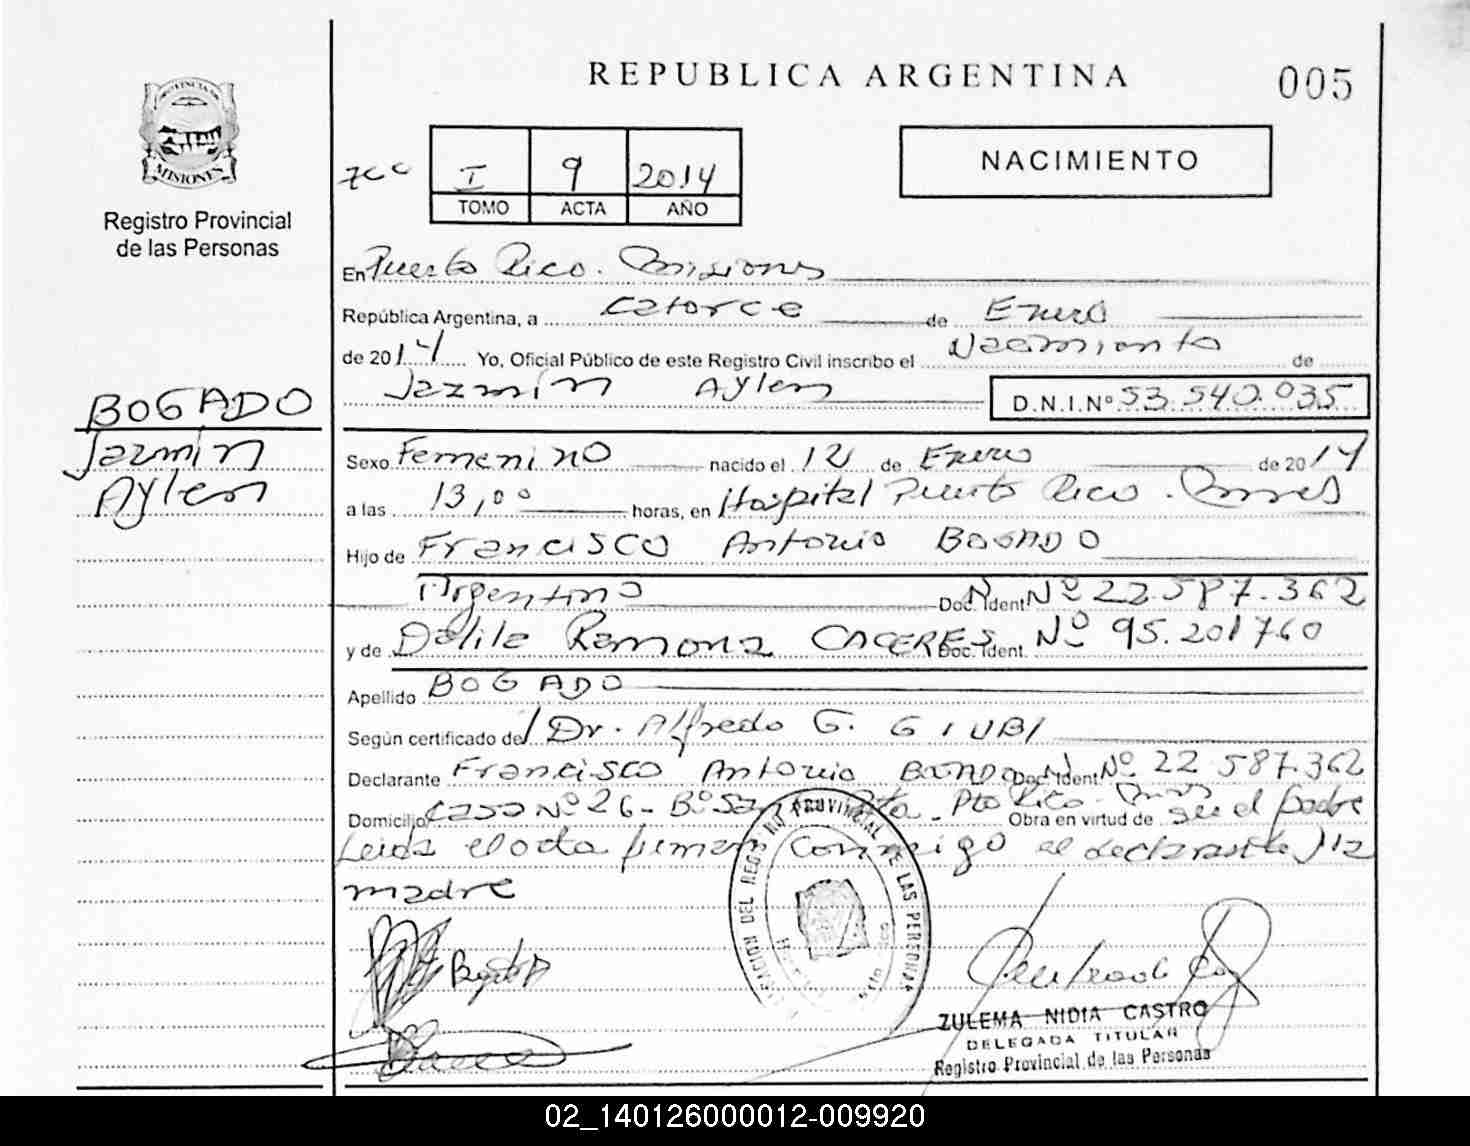 REPUBLICA ARGENTINA
005
PROVINCIA DE
MISIONES
Registro Provincial
de las Personas
I 9 2014
TOMO ACTA AÑO
NACIMIENTO
En Puerto Rico. Misiones
República Argentina, a catorce de Enero
de 2014 Yo, Oficial Público de este Registro Civil inscribo el Nacimiento de
Jazmín Aylen D.N.I.Nº 53.540.035
BOGADO
Jazmín
Aylen
Sexo Femenino nacido el 12 de Enero de 2014
a las 13,00 horas, en Hospital Puerto Rico. Mnes
Hijo de Francisco Antonio BOGADO
Argentino Doc. Ident. Nº 22.587.362
y de Dalila Ramona CACERES Doc. Ident. Nº 95.201760
Apellido BOGADO
Según certificado del Dr. Alfredo G. GIUBI
Declarante Francisco Antonio BOGADO Doc. Ident Nº 22 587.362
Domicilio Casa Nº 26 - Bº Santa Rita - Pto Rico - Mnes Obra en virtud de ser el padre
Leida el acta firman conmigo el declarante y la
madre
ZULEMA NIDIA CASTRO
DELEGADA TITULAR
Registro Provincial de las Personas
02_140126000012-009920